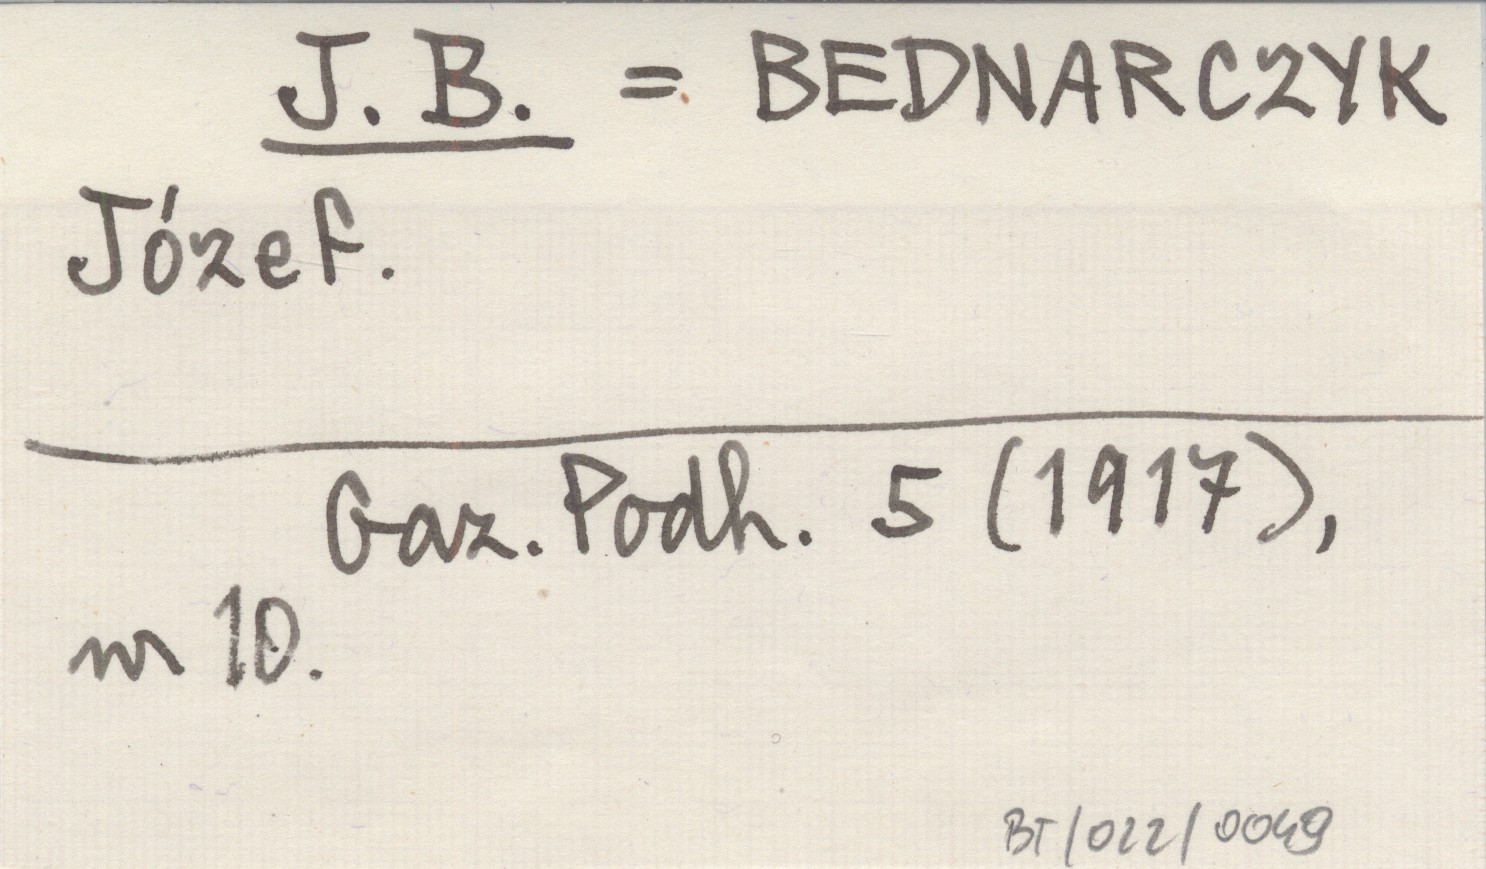 J. B. = BEDNARCZYK
Józef.
Gaz. Podh. 5 (1917),
nr 10.
BT/022/0049